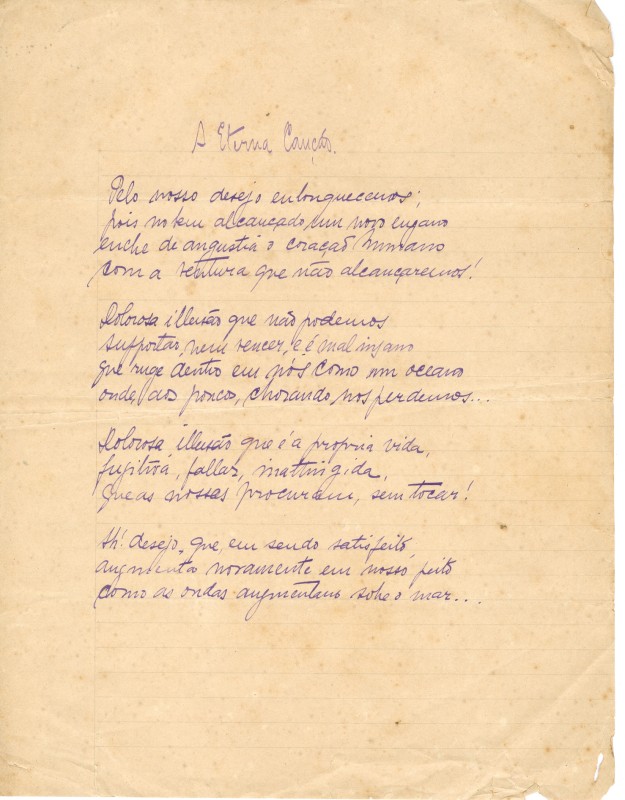 A Eterna Canção.
Pelo nosso desejo enlouquecemos;
pois nem alcançado, um novo engano
enche de angustia o coração humano
com a ventura que não alcançaremos!
Dolorosa illusão que não podemos
supportar, nem vencer, e é mal insano
que ruge dentro em nós como um oceano
onde, aos poucos, chorando, nos perdemos...
Dolorosa illusão que é a propria vida,
fugitiva, fallaz, inattingida,
que as nossas procuram, sem tocar!
Ah! desejo, que, em sendo satisfeito,
augmenta novamente em nosso peito
como as ondas augmentam sobre o mar...